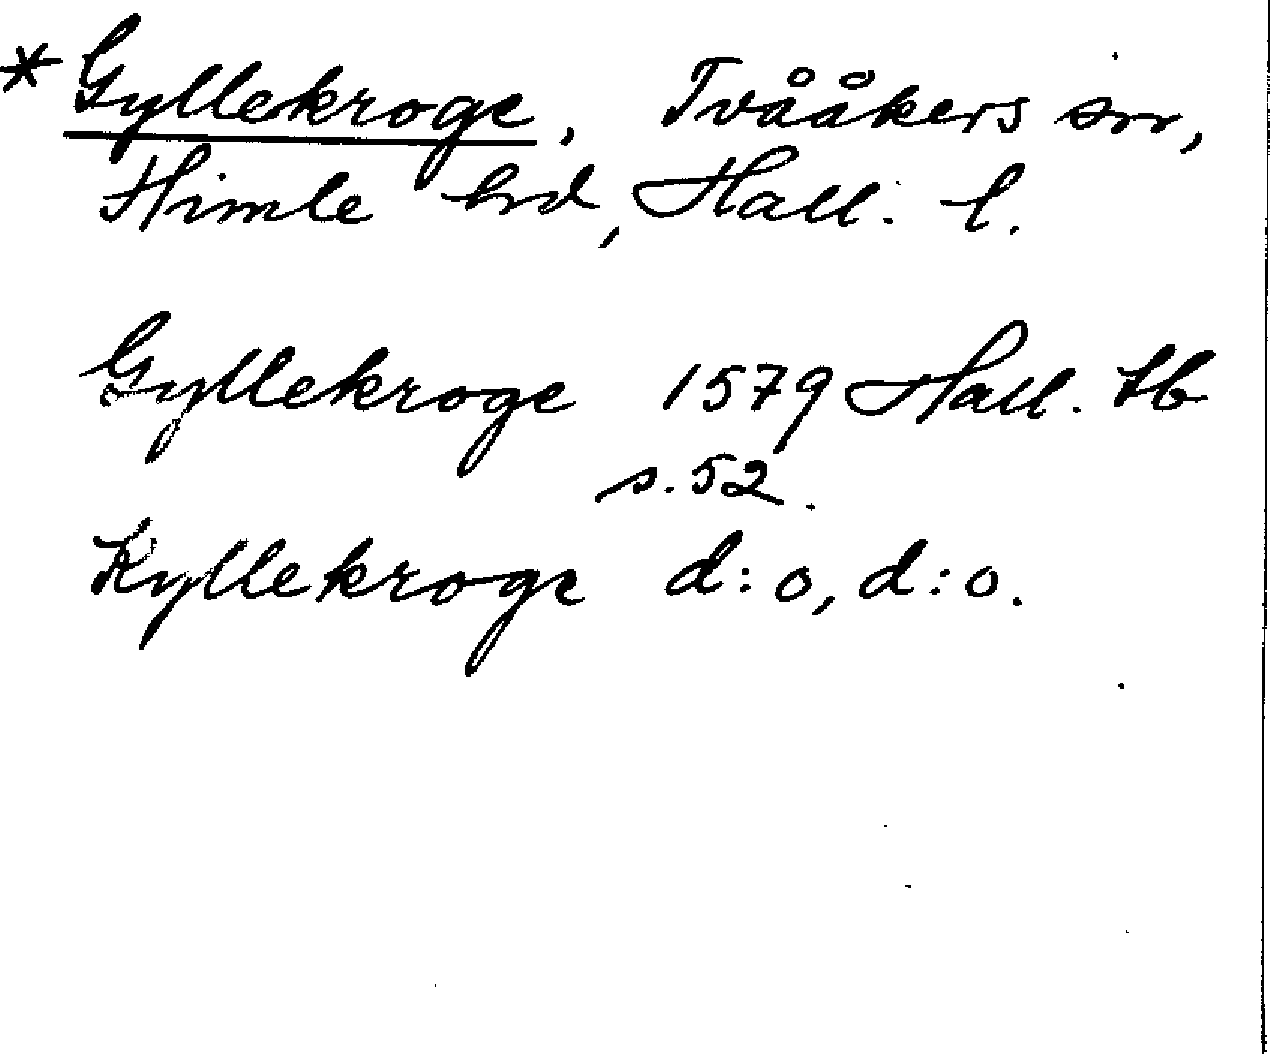 * Gyllekroge, Tvååkers sn,
Himle hd, Hall. l.
Gyllekroge 1579 Hall. tb
s. 52.
Kyllekroge d:o, d:o.